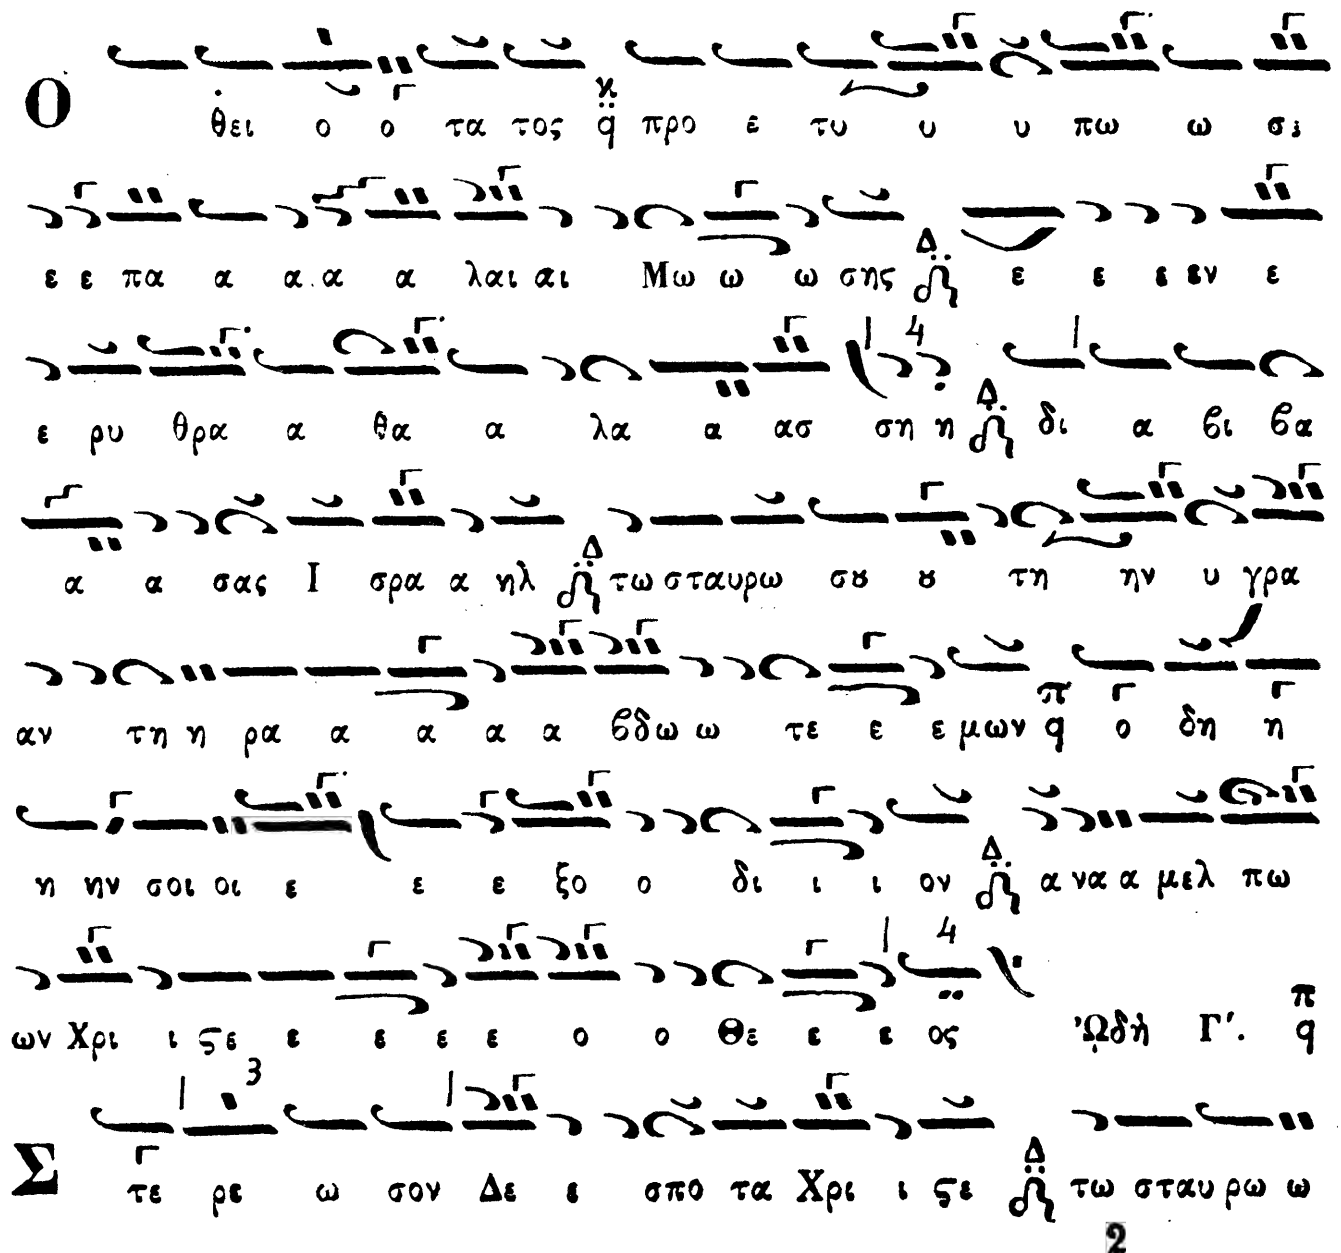 Ο θει ο ο τα τος ϗ q̈ προ ε τυ υ υ πω ω σι
ε ε πα α α α α λαι αι Μω ω ω σης Δ ε ε ε εν ε
ε ρυ θρα α θα α λα α ασ ση η 4 Δ δι α ϐι ϐα
α α σας Ι σρα α ηλ Δ τω σταυρω σȣ ȣ τη ην υ γρα
αν τη η ρα α α α α ϐδω ω τε ε ε μων π q ο δη η
η ην σοι οι ε ε ε ξο ο δι ι ι ον Δ α να α μελ πω
ων Χρι ι ϛε ε ε ε ε ο ο Θε ε ε ος 4 ᾨδὴ Γ′. π q
Σ τε ρε 3 ω σον Δε ε σπο τα Χρι ι ϛε Δ τω σταυ ρω ω
2